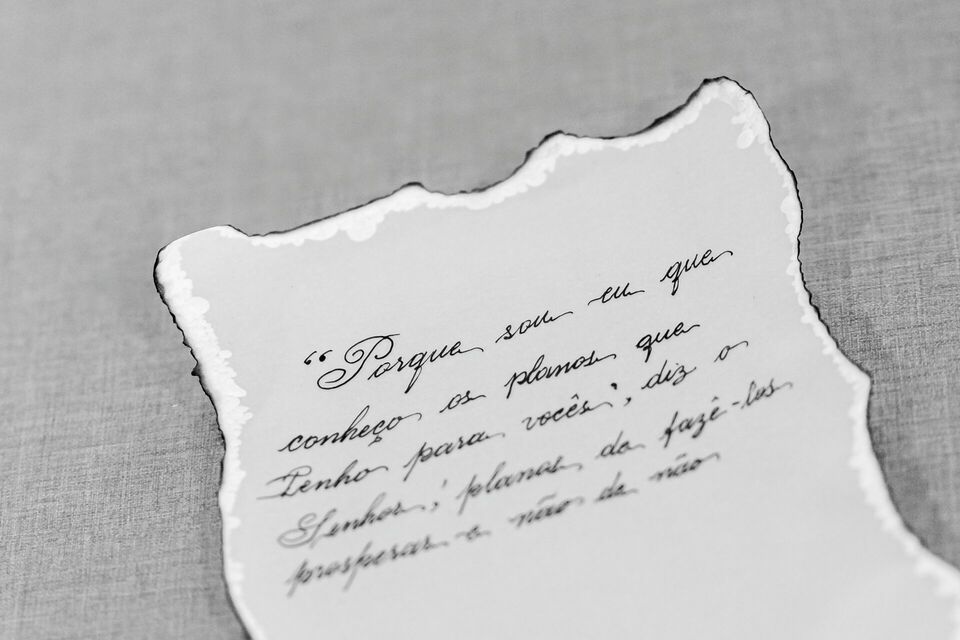 “Porque sou eu que
conheço os planos que
Tenho para vocês', diz o
Senhor; planos de fazê-los
prosperar e não de não